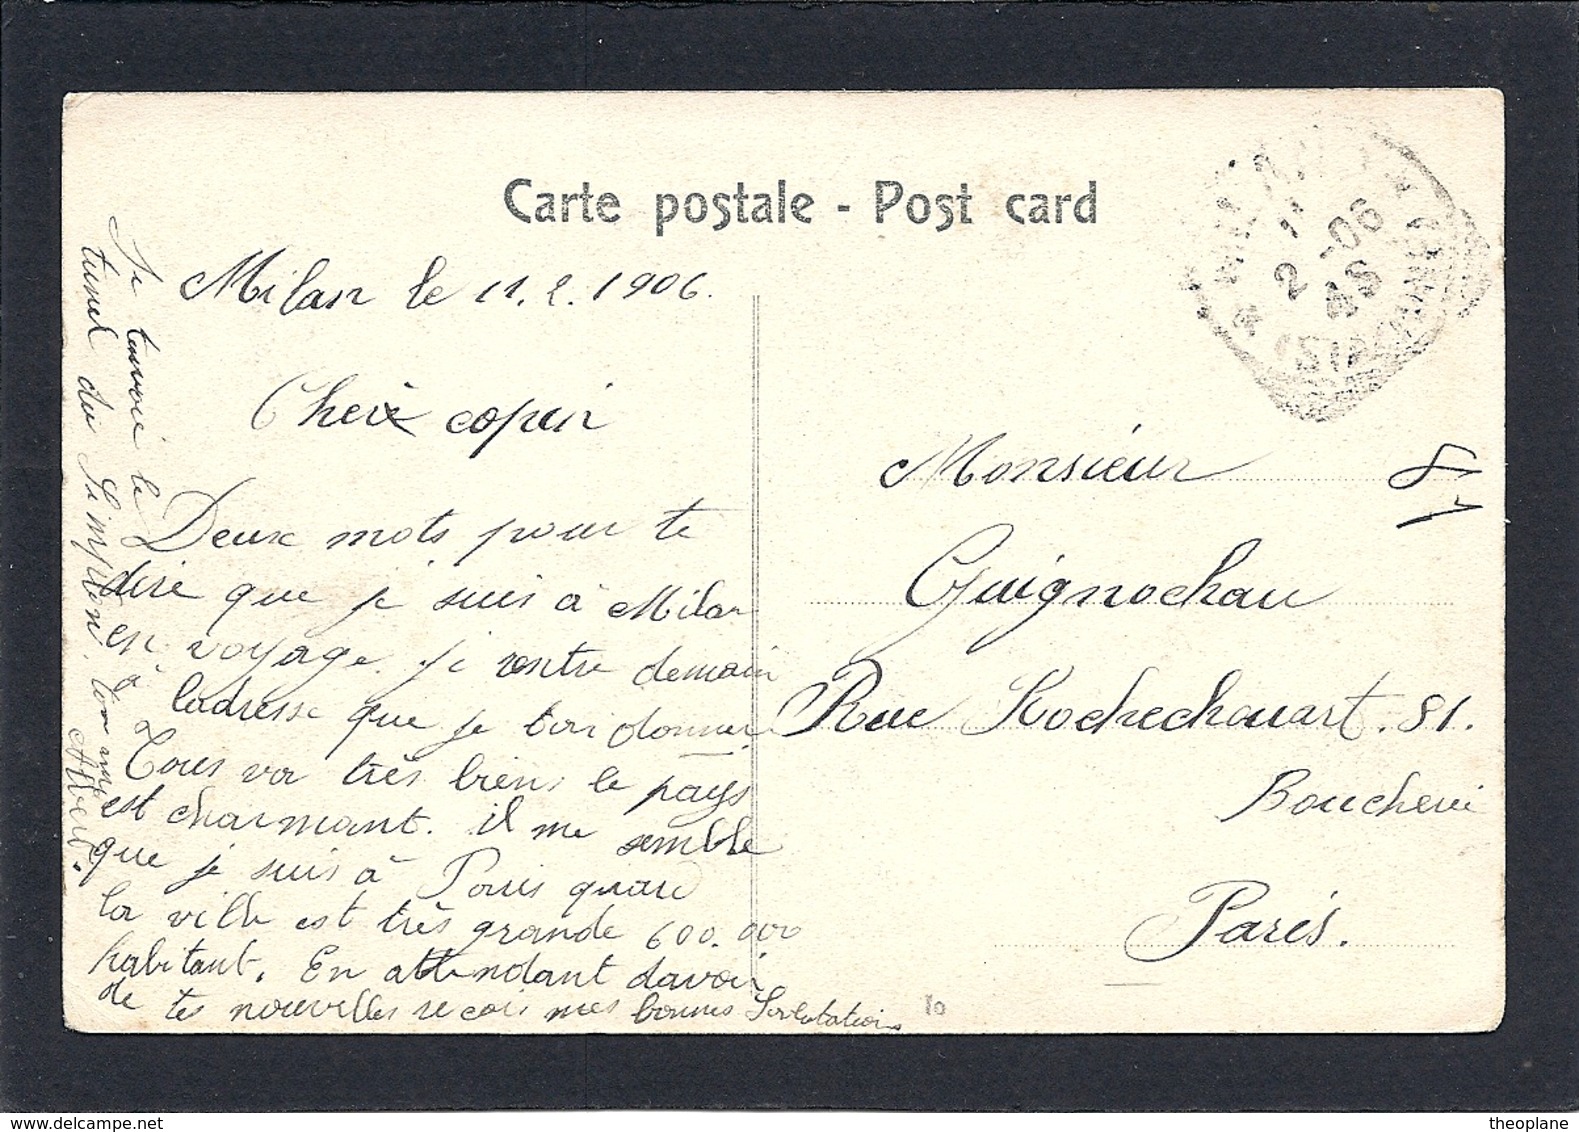 Carte postale - Post card
Milan le 11.2.1906.
Cheix copin
Deux mots pour te
dire que je suis à Milan
en voyage. Je rentre demain
à ladresse que je tai donner
Tous va très bien, le pays
est charmant. il me semble
que je suis à Paris quand
la ville est très grande 600.000
habitant. En attendant davoir
de tes nouvelles recois mes bonnes Salutations
Je tenvoie le
tunel du Simplon. ton ami
Albert.
2 -06
Monsieur
Guignochau
Rue Rochechouart. 81.
Boucherie
Paris.
10
theoplane